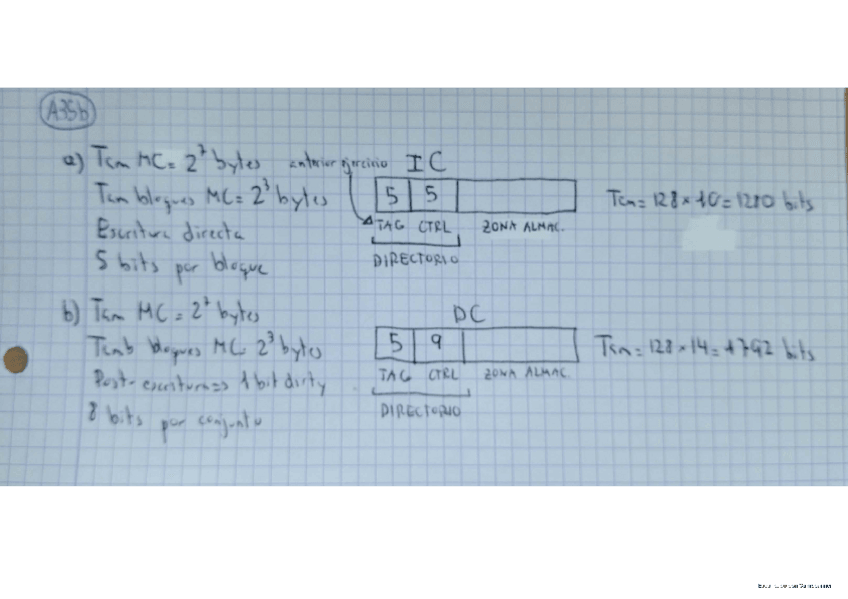 A35b
a) Tam MC = 2^7 bytes anterior ejercicio IC
Tam bloques MC = 2^3 bytes 5 5 Tam = 128 x 10 = 1280 bits
Escritura directa TAG CTRL ZONA ALMAC.
5 bits por bloque DIRECTORIO
b) Tam MC = 2^7 bytes DC
Tamb bloques MC = 2^3 bytes 5 9 Tam = 128 x 14 = 1792 bits
Post-escritura => 1 bit dirty TAG CTRL ZONA ALMAC.
8 bits por conjunto DIRECTORIO